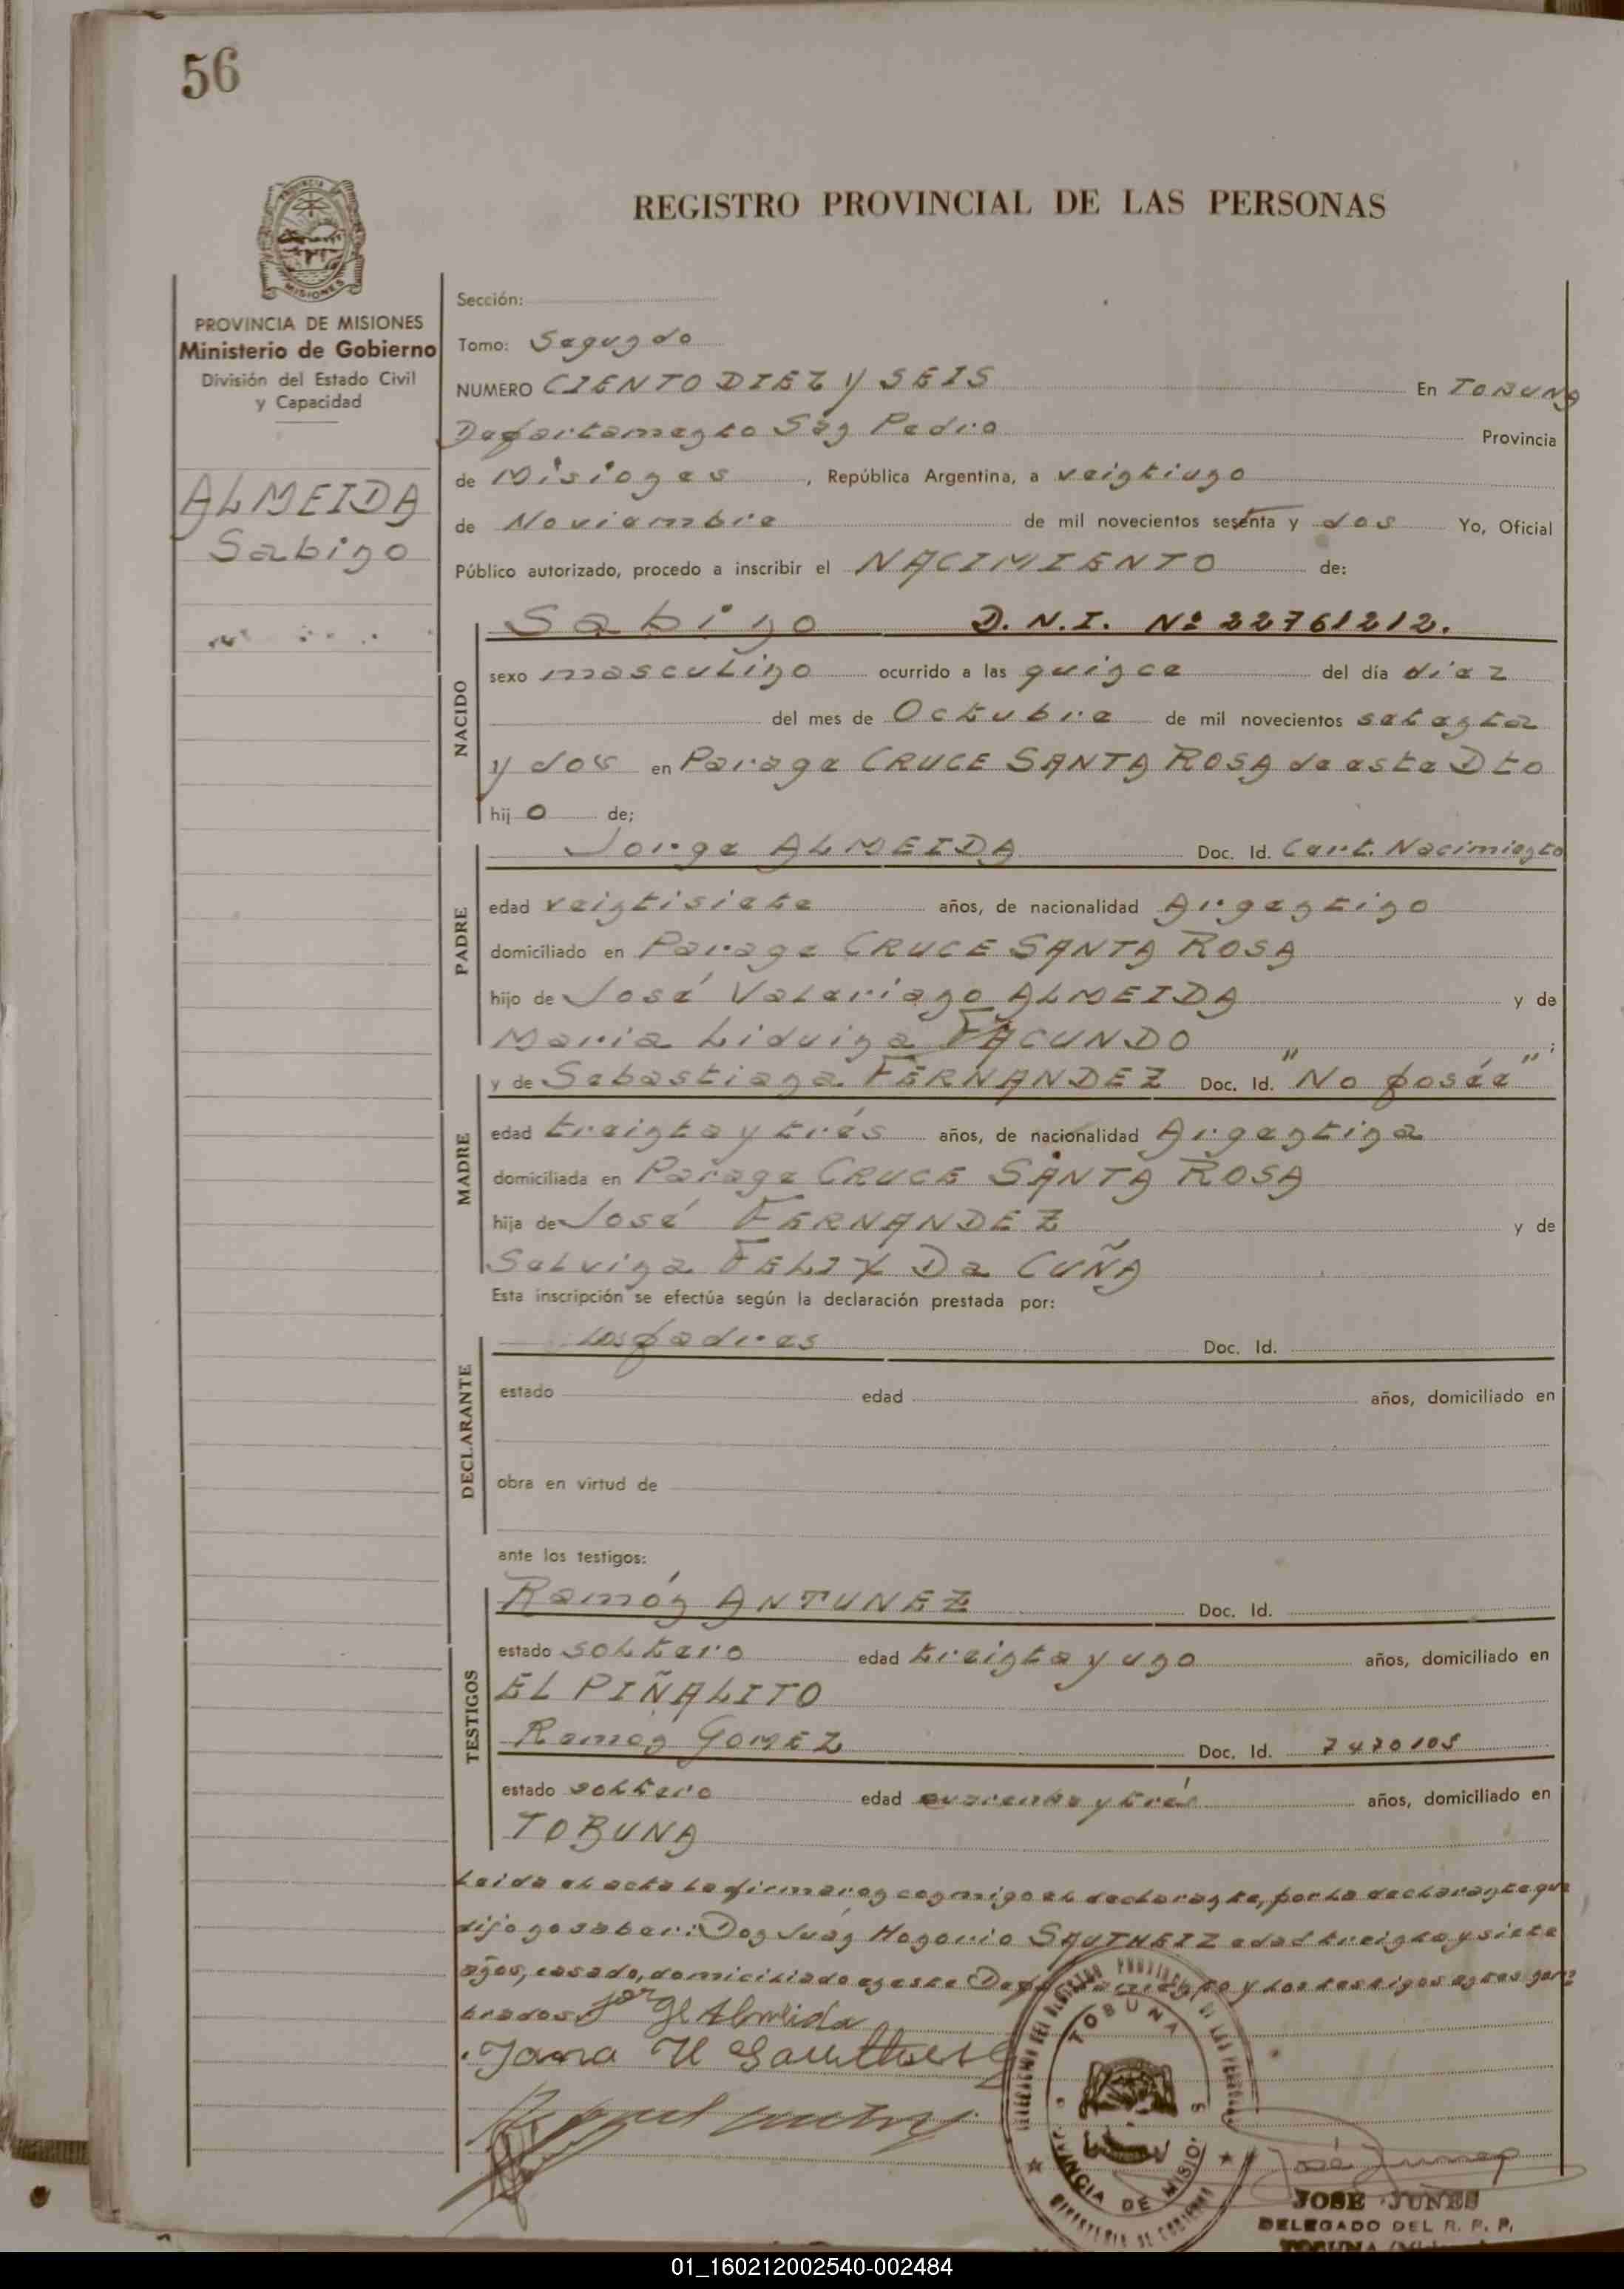 56
REGISTRO PROVINCIAL DE LAS PERSONAS
MISIONES
PROVINCIA DE MISIONES
Ministerio de Gobierno
División del Estado Civil
y Capacidad
ALMEIDA
Sabino
Sección:
Tomo: Segundo
NUMERO CIENTO DIEZ y SEIS En TOBUNA
Departamento San Pedro Provincia
de Misiones, República Argentina, a veintiuno
de Noviembre de mil novecientos sesenta y dos Yo, Oficial
Público autorizado, procedo a inscribir el NACIMIENTO de:
NACIDO
Sabino D. N. I. Nº 22761212.
sexo masculino ocurrido a las quince del día diez
del mes de Octubre de mil novecientos setenta
y dos en Parage CRUCE SANTA ROSA de este Dto
hij o de;
PADRE
Jorge ALMEIDA Doc. Id. Cert. Nacimiento
edad veintisiete años, de nacionalidad Argentino
domiciliado en Parage CRUCE SANTA ROSA
hijo de José Valeriano ALMEIDA y de
Maria Liduina FACUNDO ;
MADRE
y de Sebastiana FERNANDEZ Doc. Id. "No posée"
edad treinta y trés años, de nacionalidad Argentina
domiciliada en Parage CRUCE SANTA ROSA
hija de José FERNANDEZ y de
Selvina FELIX Da CUÑA
Esta inscripción se efectúa según la declaración prestada por:
DECLARANTE
Los padres Doc. Id.
estado edad años, domiciliado en
obra en virtud de
ante los testigos:
TESTIGOS
Ramón ANTUNEZ Doc. Id.
estado soltero edad treinta y uno años, domiciliado en
EL PIÑALITO
Ramon GOMEZ Doc. Id. 7470105
estado soltero edad cuarenta y trés años, domiciliado en
TOBUNA
Leida el acta la firmaron conmigo el declarante, por la declarante que
dijo no saber: Don Juan Honorio SAUTHEIZ edad treinta y siete
años, casado, domiciliado en este Departamento y los testigos antes nom
brados
Jorge Almeida
TOBUNA
PROVINCIA DE MISIONES
MINISTERIO DE GOBIERNO
José Junes
JOSE JUNES
DELEGADO DEL R. P. P.
TOBUNA
01_160212002540-002484